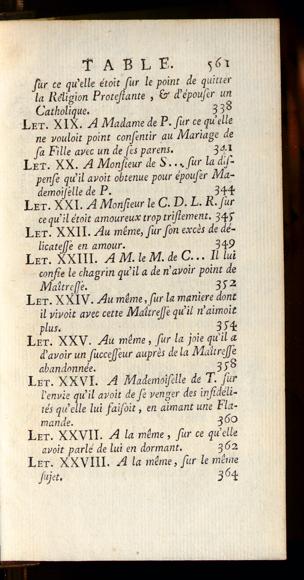 TABLE. 561
ſur ce qu'elle étoit ſur le point de quitter
la Réligion Proteſtante, & d'épouſer un
Catholique. 338
LET. XIX. A Madame de P. ſur ce qu'elle
ne vouloit point conſentir au Mariage de
ſa Fille avec un de ſes parens. 341
LET. XX. A Monſieur de S... ſur la diſ-
penſe qu'il avoit obtenue pour épouſer Ma-
demoiſelle de P. 344
LET. XXI. A Monſieur le C. D. L. R. ſur
ce qu'il étoit amoureux trop triſtement. 345
LET. XXII. Au même, ſur ſon excès de dé-
licateſſe en amour. 349
LET. XXIII. A M. le M. de C... Il lui
confie le chagrin qu'il a de n'avoir point de
Maîtreſſe. 352
LET. XXIV. Au même, ſur la maniere dont
il vivoit avec cette Maîtreſſe qu'il n'aimoit
plus. 354
LET. XXV. Au même, ſur la joie qu'il a
d'avoir un ſucceſſeur auprès de la Maîtreſſe
abandonnée. 358
LET. XXVI. A Mademoiſelle de T. ſur
l'envie qu'il avoit de ſe venger des infidéli-
tés qu'elle lui faiſoit, en aimant une Fla-
mande. 360
LET. XXVII. A la même, ſur ce qu'elle
avoit parlé de lui en dormant. 362
LET. XXVIII. A la même, ſur le même
ſujet. 364